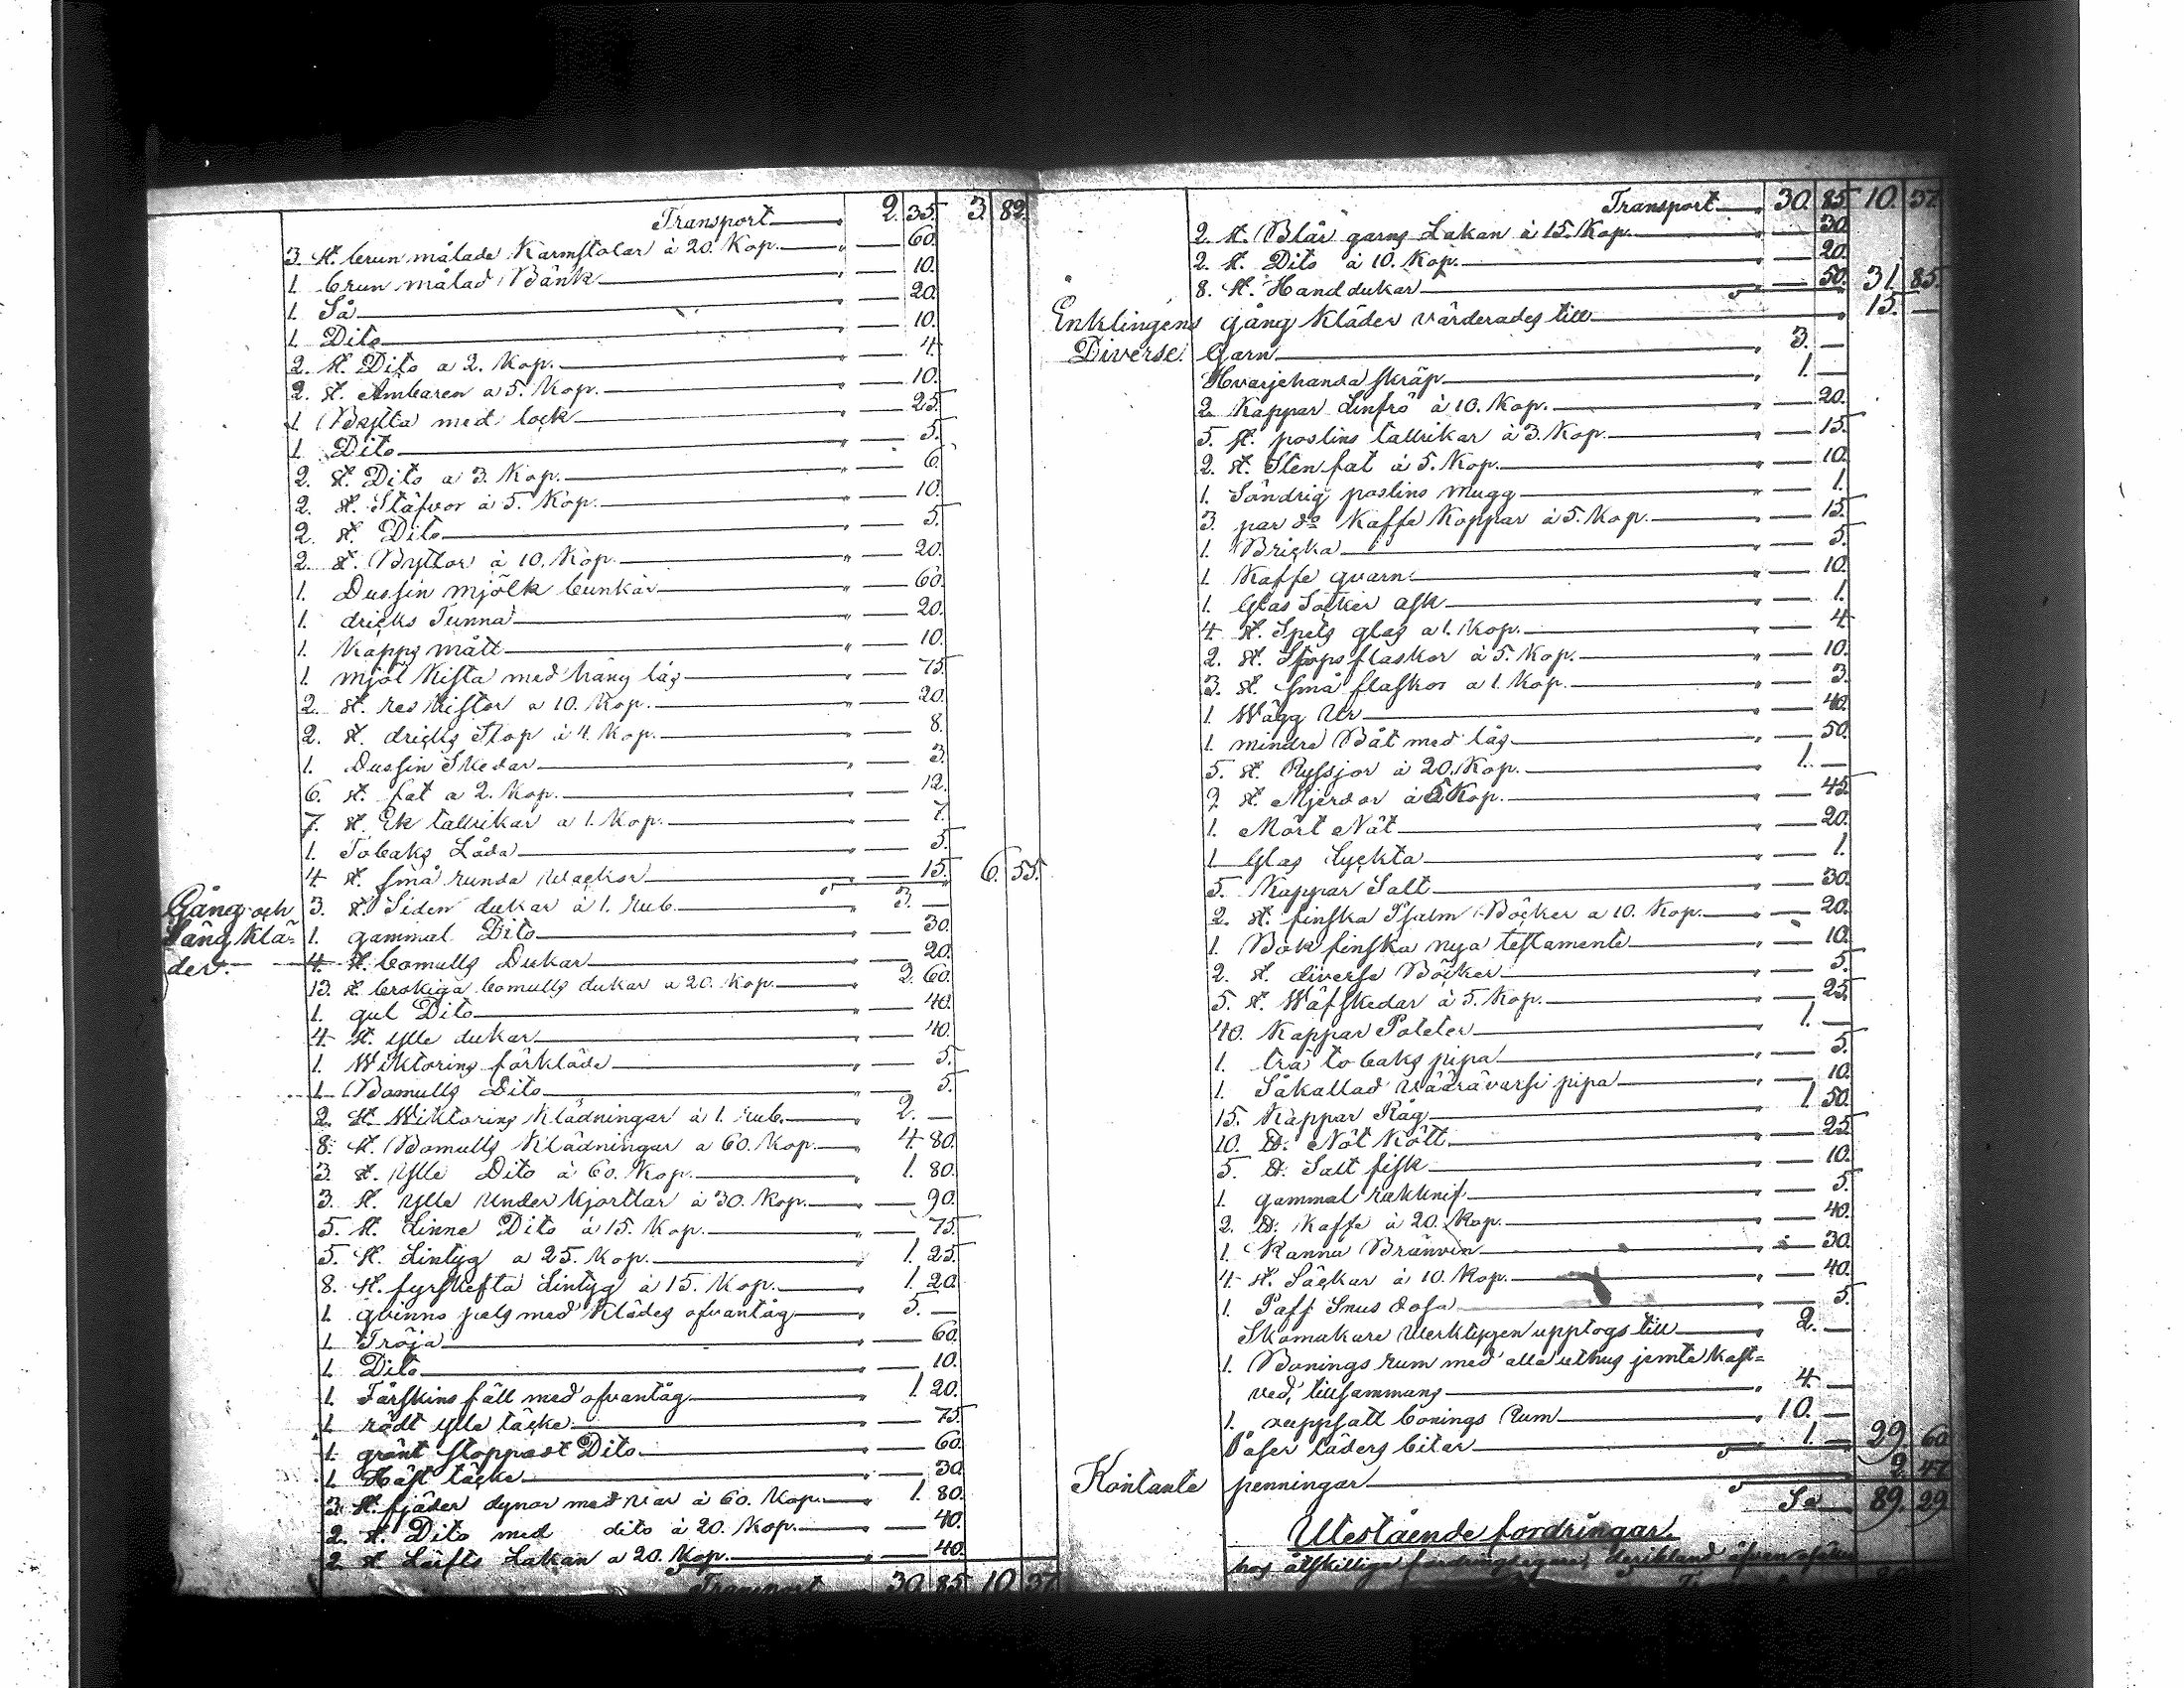 Transport 2. 35. 3. 82.
3. st. brun målade Karmstolar à 20. Kop. — 60.
1. brun målad Bänk — 10.
1. Så — 20.
1. Dito — 10.
2. st. Dito a 2. Kop. — 4.
2. st. Ämbaren a 5. Kop. — 10.
1. Bytta med lock — 25.
1. Dito — 5.
2. st. Dito a 3. Kop. — 6.
2. st. Stäfvor à 5. Kop. — 10.
2. st. Dito — 5.
2. st. Byttor à 10. Kop. — 20.
1. Dussin mjölk bunkar — 60.
1. dricks Tunna — 20.
1. Kapps mått — 10.
1. mjöl Kista med häng lås — 75.
2. st. res Kistor a 10. Kop. — 20.
2. st. dricks Stop à 4. Kop. — 8.
1. Dussin Skedar — 3.
6. st. fat a 2. Kop. — 12.
7. st. Ek tallrikar a 1. Kop. — 7.
1. Tobaks Låda — 5.
4. st. små runda Wackor — 15. 6. 55.
Gång och 3. st. Siden dukar à 1. Rub. 3. —
Säng Klä= 1. gammal Dito — 30.
der. 4. st. bomulls Dukar — 20.
13. st. brokiga bomulls dukar a 20. Kop. 2. 60.
1. gul Dito — 40.
4. st. ylle dukar — 40.
1. Wiktorins förkläde — 5.
1. Bomulls Dito — 5.
2. st. Wiktorins Klädningar à 1. Rub. 2. —
8. st. Bomulls Klädningar a 60. Kop. 4. 80.
3. st. Ylle Dito à 60. Kop. 1. 80.
3. st. ylle underkjortlar à 30. Kop. — 90.
5. st. Linne Dito à 15. Kop. — 75.
5. st. Lintyg a 25. Kop. 1. 25.
8. st. fyrskefta Lintyg à 15. Kop. 1. 20.
1. qvinns pels med Klädes ofvantåg 5. —
1. Tröja — 60.
1. Dito — 10.
1. Fårskins fäll med ofvantåg 1. 20.
1. rödt ylle täcke — 75.
1. grönt stoppadt Dito — 60.
1. Häst täcke — 30.
3. st. fjäder dynor med Var à 60. Kop. 1. 80.
2. st. Dito med dito à 20. Kop. — 40.
2. st. Lärfts Lakan a 20. Kop. — 40.
Transport 30. 85. 10. 37.
Transport 30. 85. 10. 37.
2. st. Blår garns Lakan à 15. Kop. — 30.
2. st. Dito à 10. Kop. — 20.
8. st. Handdukar — 50. 31. 85.
Enklingens gång Kläder värderades till 15. —
Diverse. Garn 3. —
Hvarjehanda skräp 1. —
2. Kappar Linfrö à 10. Kop. — 20.
5. st. poslins tallrikar à 3. Kop. — 15.
2. st. Sten fat à 5. Kop. — 10.
1. Söndrig poslins Mugg — 1.
3. par do Kaffe Koppar à 5. Kop. — 15.
1. Bricka — 5.
1. Kaffe qvarn — 10.
1. Glas Socker ask — 1.
4. st. Spets glas a 1. Kop. — 4.
2. st. Stops flaskor à 5. Kop. — 10.
3. st. små flaskor a 1. Kop. — 3.
1. Wägg Ur — 40.
1. mindre Båt med lås — 50.
5. st. Ryssjor à 20. Kop. 1. —
9. st. Mjerdor à 5 Kop. — 45.
1. Mört Nät — 20.
1. Glas Lyckta — 1.
5. Kappar Salt — 30.
2. st. finska Psalm Böcker a 10. Kop. — 20.
1. Bok finska nya testamente — 10.
2. st. diverse Böcker — 5.
5. st. Wäfskedar à 5. Kop. — 25.
40. Kappar Poteter 1. —
1. trä tobaks pipa — 5.
1. Såkallad väärävarsi pipa — 10.
15. Kappar Råg 1. 50.
10. ℔. Nöt Kött — 25.
5. ℔. Salt fisk — 10.
1. gammal rakknif — 5.
2. ℔. Kaffe à 20. Kop. — 40.
1. Kanna Bränvin — 30.
4. st. Säckar à 10. Kop. — 40.
1. Paff Snus dosa — 5.
Skomakare Werktygen upptogs till 2. —
1. Bonings rum med alla uthus jemte Kast=
ved, tillsammans 4. —
1. uppsatt bonings Rum 10. —
läders bitar 1. — 29. 60.
Kontante penningar 2. 47.
Sa 89. 29.
Utestående fordringar.
hos åtskillige